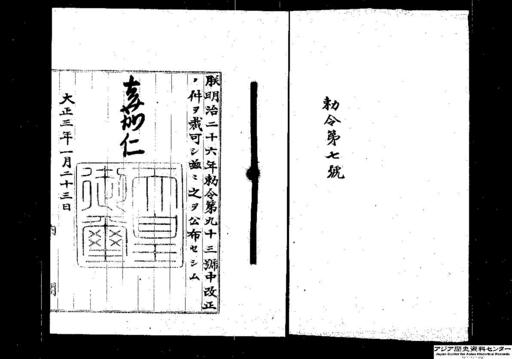 勅令第七號
朕明治二十六年勅令第九十三號中改正
ノ件ヲ裁可シ茲ニ之ヲ公布セシム
嘉仁
天皇御璽
大正三年一月二十三日
内閣
アジア歴史資料センター
Japan Center for Asian Historical Records